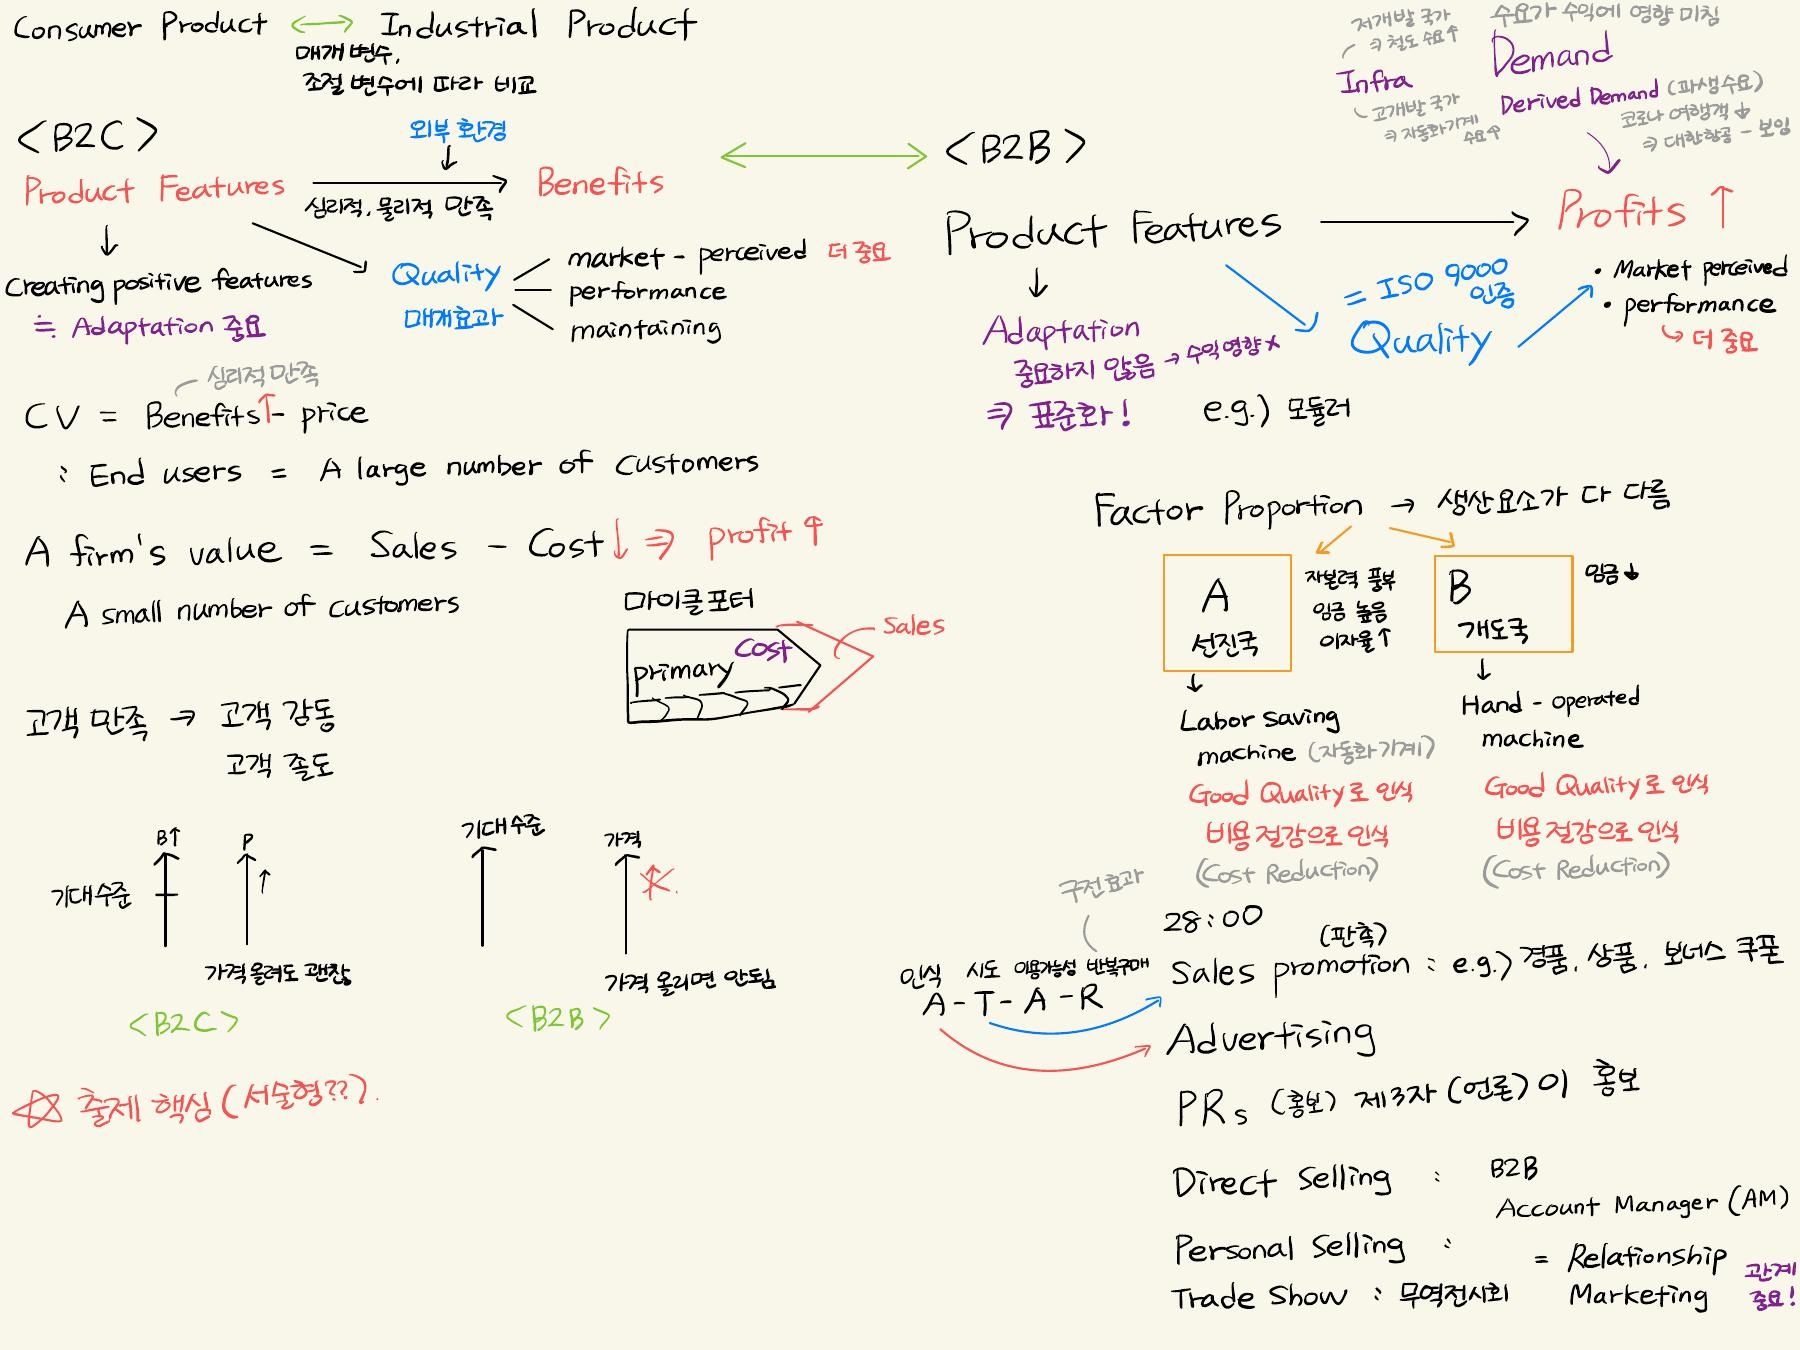 Consumer Product ↔ Industrial Product
매개 변수,
조절 변수에 따라 비교
<B2C>
외부 환경
Product Features → Benefits
심리적, 물리적 만족
Creating positive features
≒ Adaptation 중요
Quality
매개효과
market - perceived 더 중요
performance
maintaining
심리적 만족
CV = Benefits↑ - price
: End users = A large number of customers
A firm's value = Sales - Cost↓ ⇒ profit ↑
A small number of customers
마이클 포터
primary
Cost
Sales
고객 만족 → 고객 감동
고객 졸도
B↑
P
↑
기대수준
가격 올려도 괜찮
<B2C>
기대수준
가격
가격 올리면 안됨
<B2B>
☆ 출제 핵심 (서술형??).
저개발 국가
⇒ 철도 수요↑
Infra
고개발 국가
⇒ 자동화기계
수요↑
수요가 수익에 영향 미침
Demand
Derived Demand (파생수요)
코로나 여행객 ↓
⇒ 대한항공 - 보잉
<B2B>
Product Features → Profits ↑
Adaptation
중요하지 않음 → 수익 영향 x
⇒ 표준화!
e.g.) 모듈러
= ISO 9000
인증
Quality
• Market perceived
• performance
↳ 더 중요
Factor Proportion → 생산요소가 다 다름
A
선진국
자본력 풍부
임금 높음
이자율↑
B
개도국
임금↓
Labor saving
machine (자동화기계)
Good Quality로 인식
비용 절감으로 인식
(Cost Reduction)
Hand - operated
machine
Good Quality로 인식
비용 절감으로 인식
(Cost Reduction)
구전효과
인식 시도 이용가능성 반복구매
A - T - A - R
28:00
(판촉)
Sales promotion : e.g.) 경품, 상품, 보너스 쿠폰
Advertising
PRs (홍보) 제3자 (언론)이 홍보
Direct Selling : B2B
Account Manager (AM)
Personal Selling :
= Relationship
Marketing
관계
중요!
Trade Show : 무역전시회